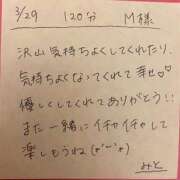 3/29 120分 M様
沢山気持ちよくしてくれたり、
気持ちよくなってくれて幸せ♡♡
優しくしてくれてありがとう!!
また一緒にイチャイチャして
楽しもうね(*´︶`*)
みと